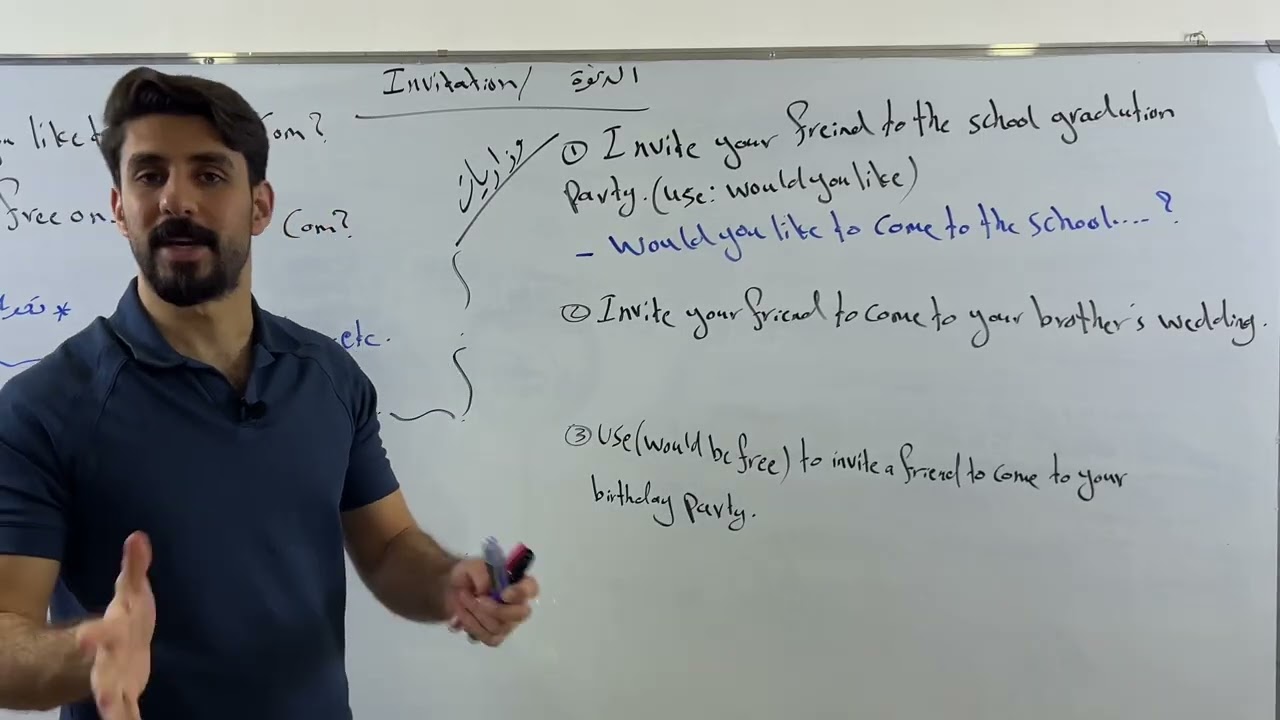 Invitation / الدعوة
like t
om?
free on.
Com?
*
etc.
وزاريات
① Invite your freind to the school gradution
Party. (use: would you like)
- Would you like to come to the school....?
② Invite your friend to come to your brother's wedding.
③ Use (would be free) to invite a friend to come to your
birthday party.